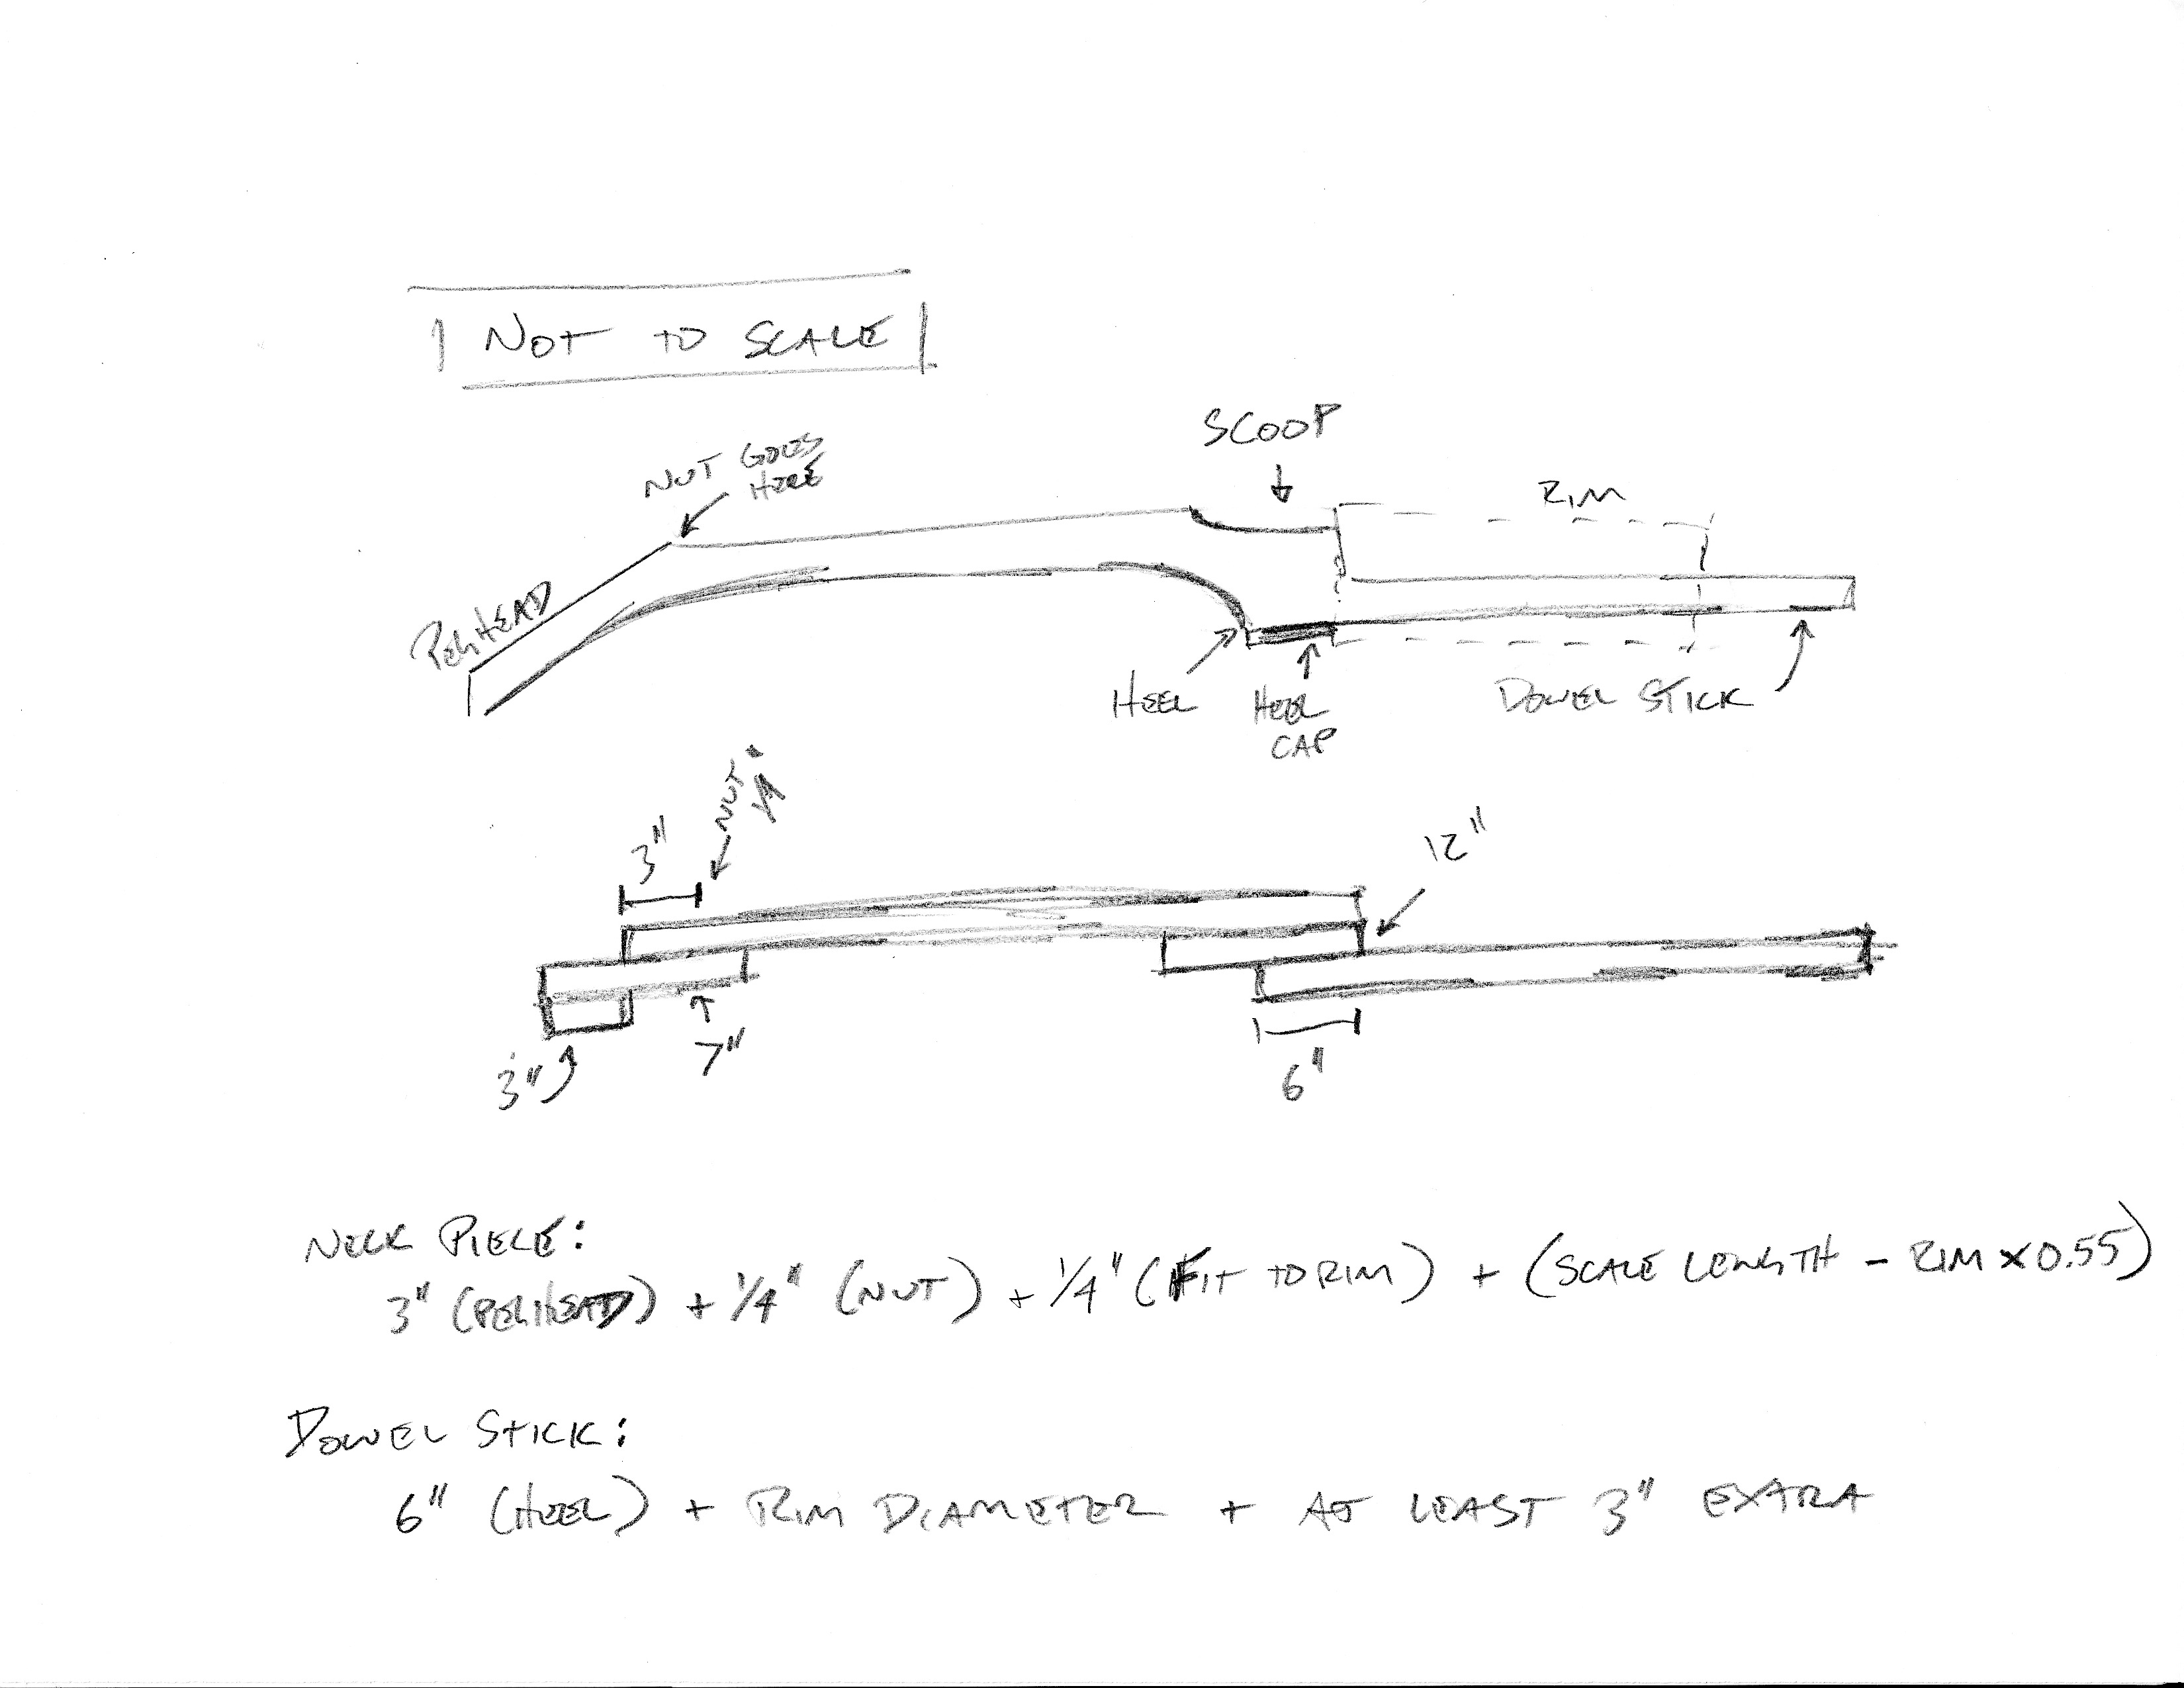 NOT TO SCALE
SCOOP
NUT GOES
HERE
RIM
PEGHEAD
HEEL
HEEL
CAP
DOWEL STICK
NUT
1/4"
3"
12"
7"
3"
6"
NECK PIECE:
3" (PEGHEAD) + 1/4" (NUT) + 1/4" (FIT TO RIM) + (SCALE LENGTH - RIM x 0.55)
DOWEL STICK:
6" (HEEL) + RIM DIAMETER + AT LEAST 3" EXTRA